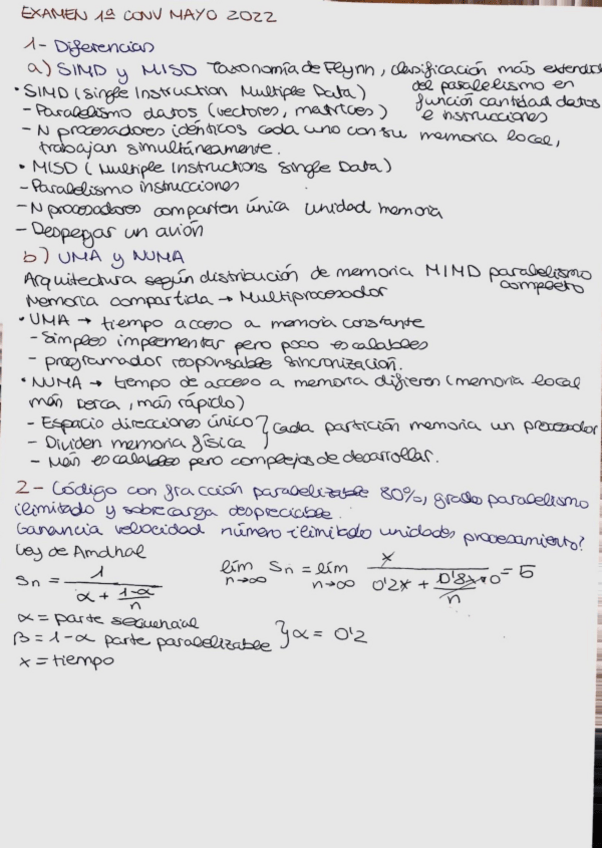 EXAMEN 1ª CONV MAYO 2022
1- Diferencias
a) SIMD y MISD Taxonomía de Flynn, clasificación más extendida
del paralelismo en
función cantidad datos
e instrucciones
• SIMD (Single Instruction Multiple Data)
- Paralelismo datos (vectores, matrices)
- N procesadores idénticos cada uno con su memoria local,
trabajan simultáneamente.
• MISD (Multiple Instructions Single Data)
- Paralelismo instrucciones
- N procesadores comparten única unidad memoria
- Despegar un avión
b) UMA y NUMA
Arquitectura según distribución de memoria MIMD paralelismo
completo
Memoria compartida → Multiprocesador
• UMA → tiempo acceso a memoria constante
- Simples implementar pero poco escalables
- programador responsable sincronización.
• NUMA → tiempo de acceso a memoria difieren (memoria local
más cerca, más rápido)
- Espacio direcciones único } cada partición memoria un procesador
- Dividen memoria física
- Más escalables pero complejos de desarrollar.
2- Código con fracción paralelizable 80%, grado paralelismo
ilimitado y sobrecarga despreciable.
Ganancia velocidad número ilimitado unidades procesamiento?
Ley de Amdhal
Sn = 1 / (α + (1-α)/n)    lím n→∞ Sn = lím n→∞ x / (0'2x + 0'8x/n → 0) = 5
α = parte secuencial
β = 1-α parte paralelizable } α = 0'2
x = tiempo